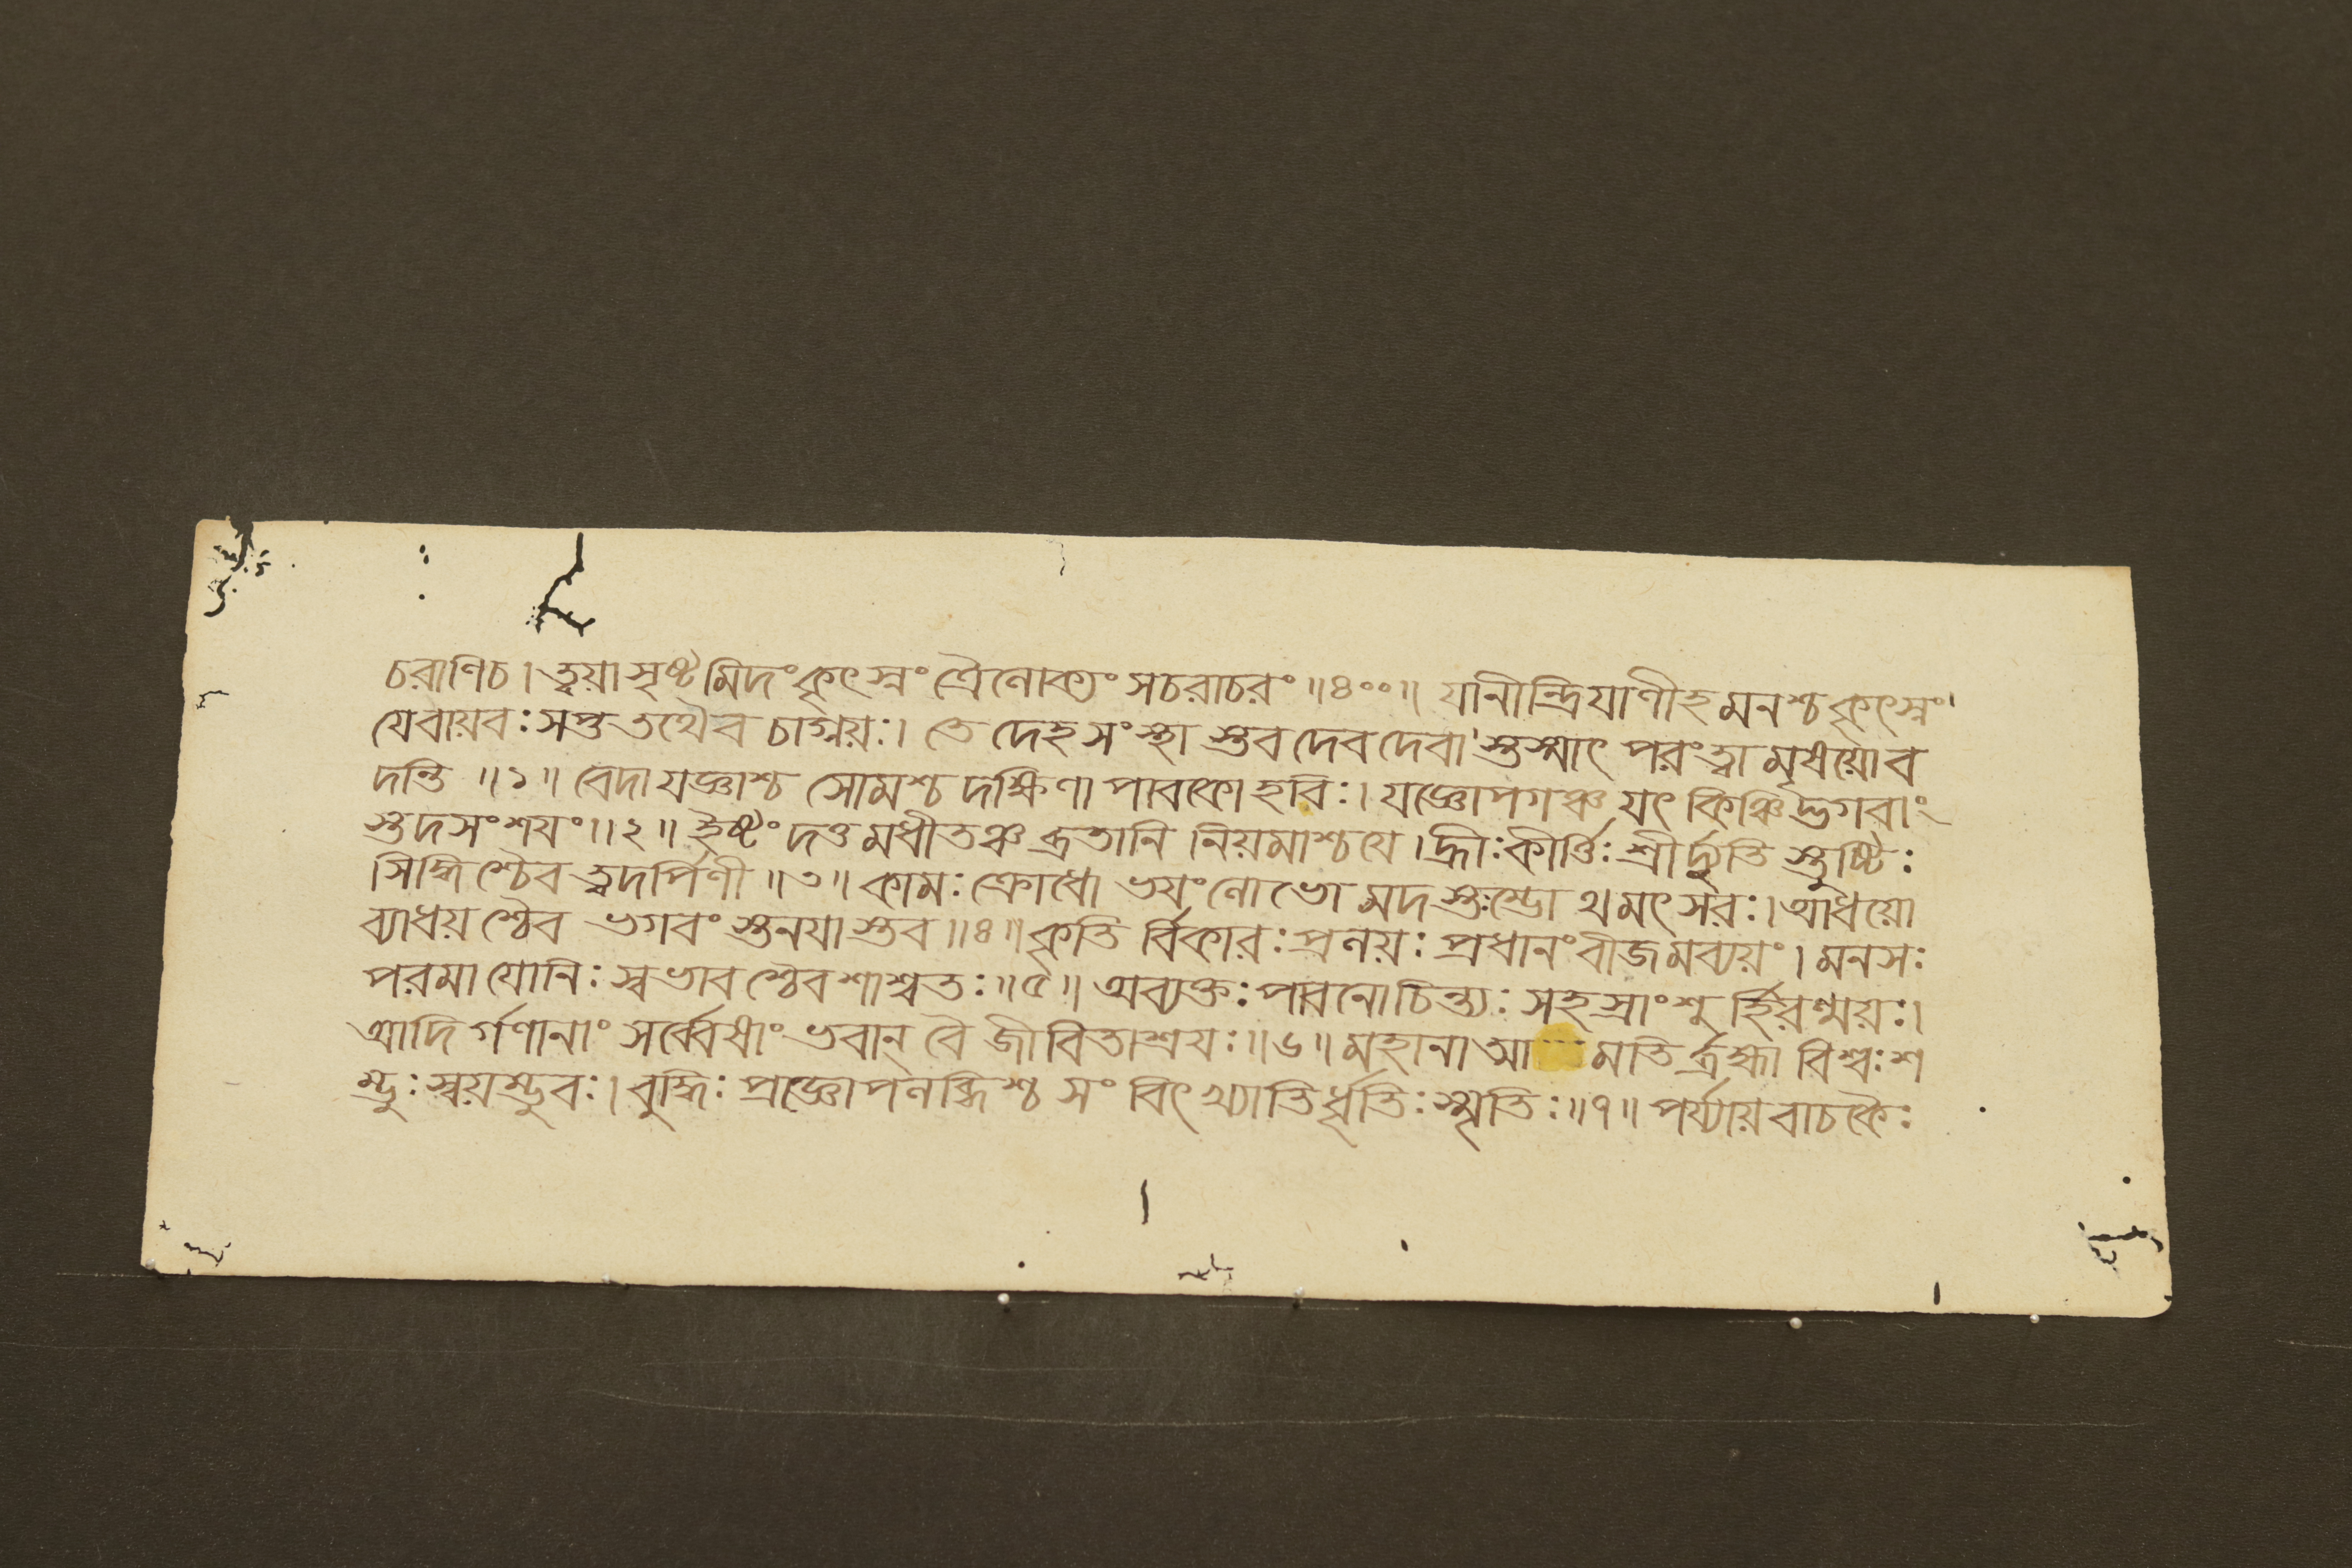 চরাণিচ। ত্বয়া সৃষ্টমিদং কৃৎস্নং ত্রৈলোক্যং সচরাচরং ॥৪০০॥ যানীন্দ্রিয়াণীহ মনশ্চ কৃৎস্নং
যেবায়বঃ সপ্ত তথৈব চাগ্নয়ঃ। তে দেহসংস্থা স্তব দেবদেবা স্তস্মাৎ পরং ত্বা মৃষয়োব
দন্তি ॥১॥ বেদা যজ্ঞাশ্চ সোমশ্চ দক্ষিণা পাবকো হবিঃ। যজ্ঞোপগঞ্চ যৎ কিঞ্চিদ্ভগবাং
স্তদসংশয়ং ॥২॥ ইষ্টং দত্তমধীতঞ্চ ব্রতানি নিয়মাশ্চ যে। হ্রীঃ কীর্ত্তিঃ শ্রীর্দ্যুতি স্তুষ্টিঃ
সিদ্ধিশ্চৈব ত্বদর্পিণী ॥৩॥ কামঃ ক্রোধো ভয়ং লোভো মদ স্তম্ভো থ মৎসরঃ। আধয়ো
ব্যাধয় শ্চৈব ভগবং স্তনয়া স্তব ॥৪॥ কৃতি র্বিকারঃ প্রলয়ঃ প্রধানং বীজমব্যয়ং। মনসঃ
পরমা যোনিঃ স্বভাব শ্চৈব শাশ্বতঃ ॥৫॥ অব্যক্তঃ পাবনোচিন্ত্যঃ সহস্রাংশু র্হিরণ্ময়ঃ।
আদি র্গণানাং সর্ব্বেষাং ভবান্ বৈ জীবিতাশ্রয়ঃ ॥৬॥ মহানা আ মতি র্ব্রহ্মা বিশ্বঃ শ
ম্ভুঃ স্বয়ম্ভুবঃ। বুদ্ধিঃ প্রজ্ঞোপলব্ধিশ্চ সংবিৎ খ্যাতির্ধৃতিঃ স্মৃতিঃ ॥৭॥ পর্য্যায়বাচকৈঃ